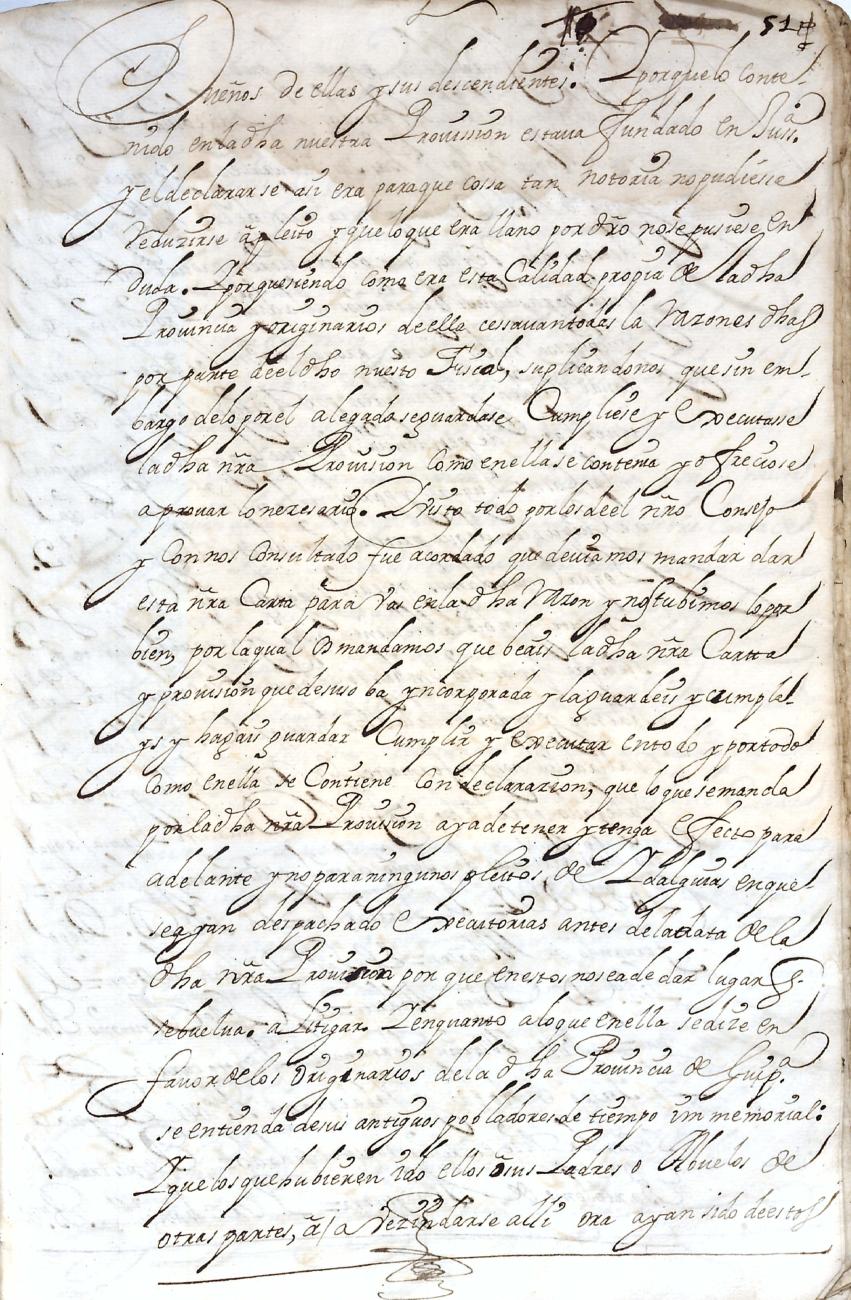 51
Dueños de ellas y sus descendientes: Y porque lo conte-
nido en la dha nuestra Prouission estaua fundado en Jusª.
y el declararse asi era para que cossa tan notoria no pudiesse
reduzirse a pleito y que lo que era llano por dro no se pusiese en
duda. Y porque siendo como era esta Calidad propia de la dha
Prouincia y originarios de ella cessauan todas la razones dhas
por parte de el dho nuesto Fiscal, suplicandonos que sin em-
bargo de lo por el alegado se guardase Cumpliese y Executasse
la dha nrã Prouision como en ella se contenia y ofreciose
a prouar lo nezesario. Y visto todo por los de el nrõ Consejo
y con nos Consultado fue acordado que deuiamos mandar dar
esta nrã Carta para vos en la dha razon y nos tubimos lo por
bien, por la qual os mandamos que beais la dha nrã Cartta
y prouision que desuso ba yncorporada y la guardeis y cumpla-
ys y hagais guardar Cumplir y executar en todo y por todo
como en ella se Contiene con declarazion, que lo que se manda
por la dha nrã Prouision aya de tener y tenga efecto para
adelante y no para ningunos pleitos de Ydalguias en que
se ayan despachado Executorias antes de la data de la
dha nrã Prouision por que en estos no se a de dar lugar
se buelua. a Litigar. Y en quanto a lo que en ella se dize en
fauor de los originarios de la dha Prouincia de Guipª.
se entienda de sus antiguos pobladores de tiempo immemorial:
Y que los que hubieren ido ellos o sus Padres o Abuelos de
otras partes, a Vezindarse alli ora ayan sido de estos